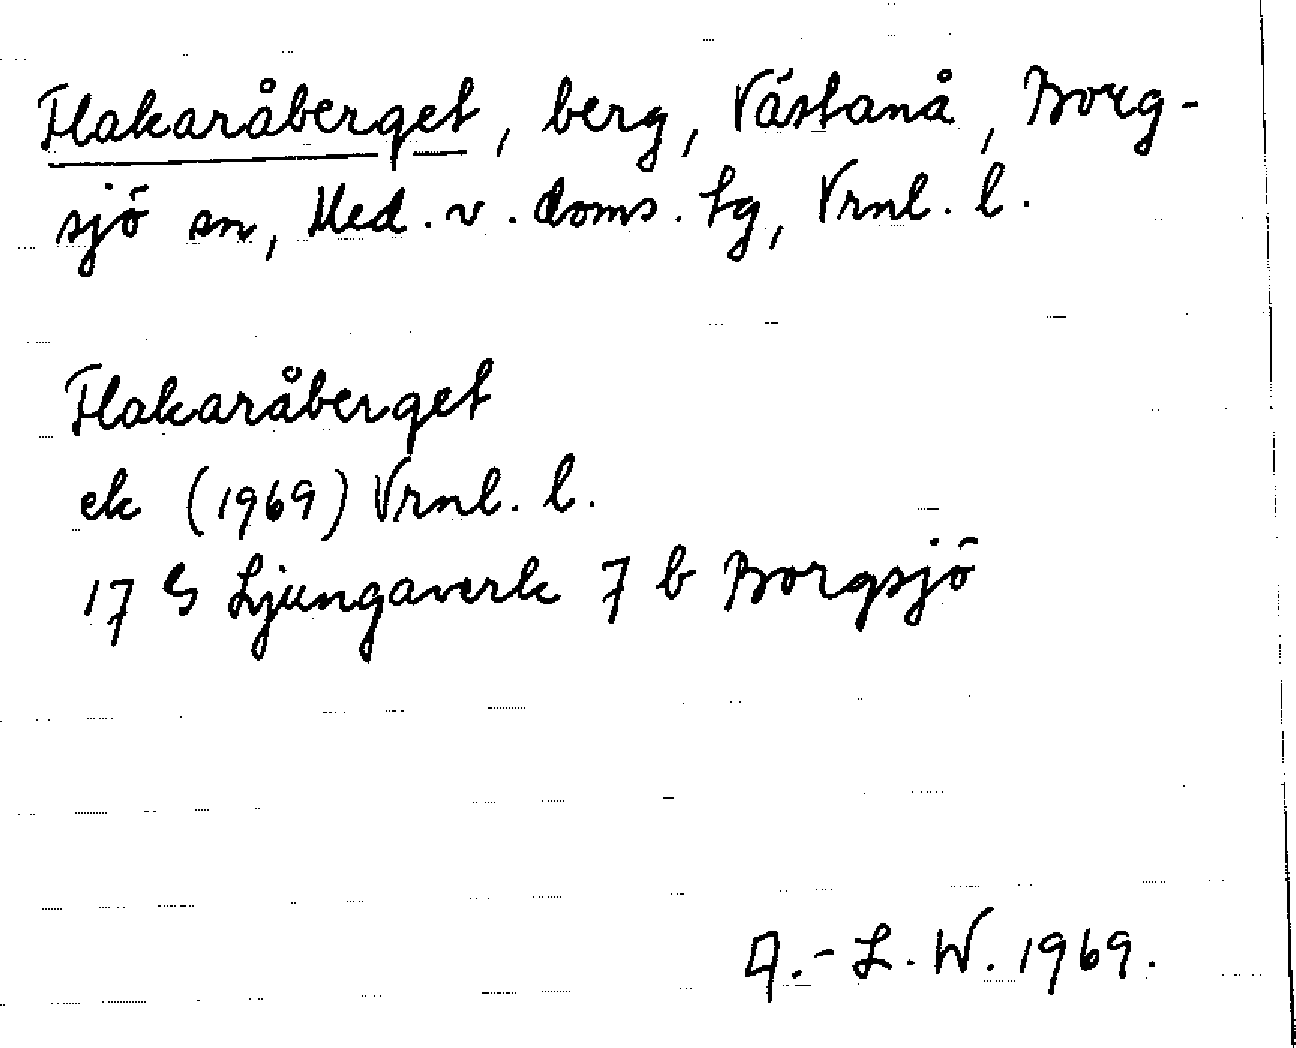 Flakaråberget, berg, Västanå, Borg-
sjö sn, Med. v. doms. tg, Vrnl. l.
Flakaråberget
ek (1969) Vrnl. l.
17 G Ljungaverk 7 b Borgsjö
A.-L. W. 1969.